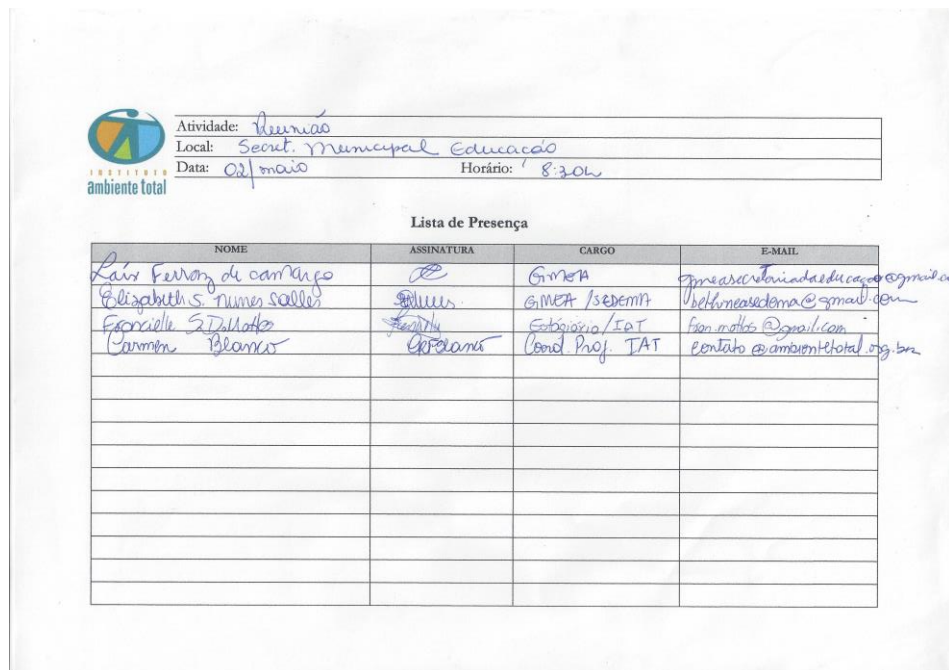 Atividade: Reunião
Local: Secret. Municipal Educação
Data: 02/maio Horário: 8:30h
INSTITUTO
ambiente total
Lista de Presença
NOME ASSINATURA CARGO E-MAIL
Laís Ferraz de Camargo GMEA gmeasecretariadaeducaçao@gmail.co
Elizabeth S. Nunes Salles GMEA/SEDEMA bethneasedema@gmail.com
Francielle S. D. Mattos Estagiário/IAT fran.mattos@gmail.com
Carmen Blanco CBlanco Coord. Proj. IAT contato@ambientetotal.org.br